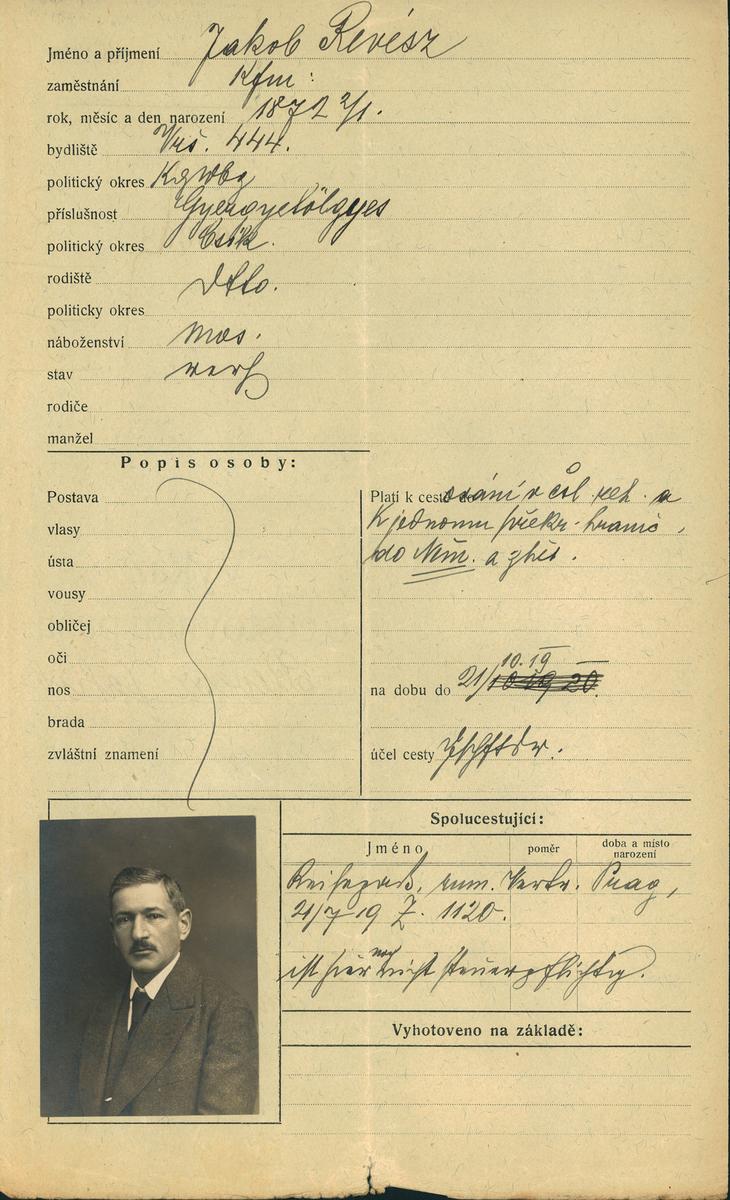 Jméno a příjmení Jakob Révész
zaměstnání Kfm:
rok, měsíc a den narození 1872 2/1.
bydliště Vrš. 444.
politický okres Kgwbg
příslušnost Gyergyótölgyes
politický okres Csik.
rodiště Dtto.
politicky okres
náboženství mos.
stav verh
rodiče
manžel
Popis osoby:
Postava
vlasy
ústa
vousy
obličej
oči
nos
brada
zvláštní znamení
Platí k cestě do v čsl. rek. a
K jednomu překr. hranic,
do Něm. a zpět.
na dobu do 21/10.19
účel cesty
Spolucestující:
Jméno poměr doba a místo narození
Reisepass. rum. Vertr. Prag,
21/7 19 Z. 1120.
ist hier noch nicht steuerpflichtig.
Vyhotoveno na základě: